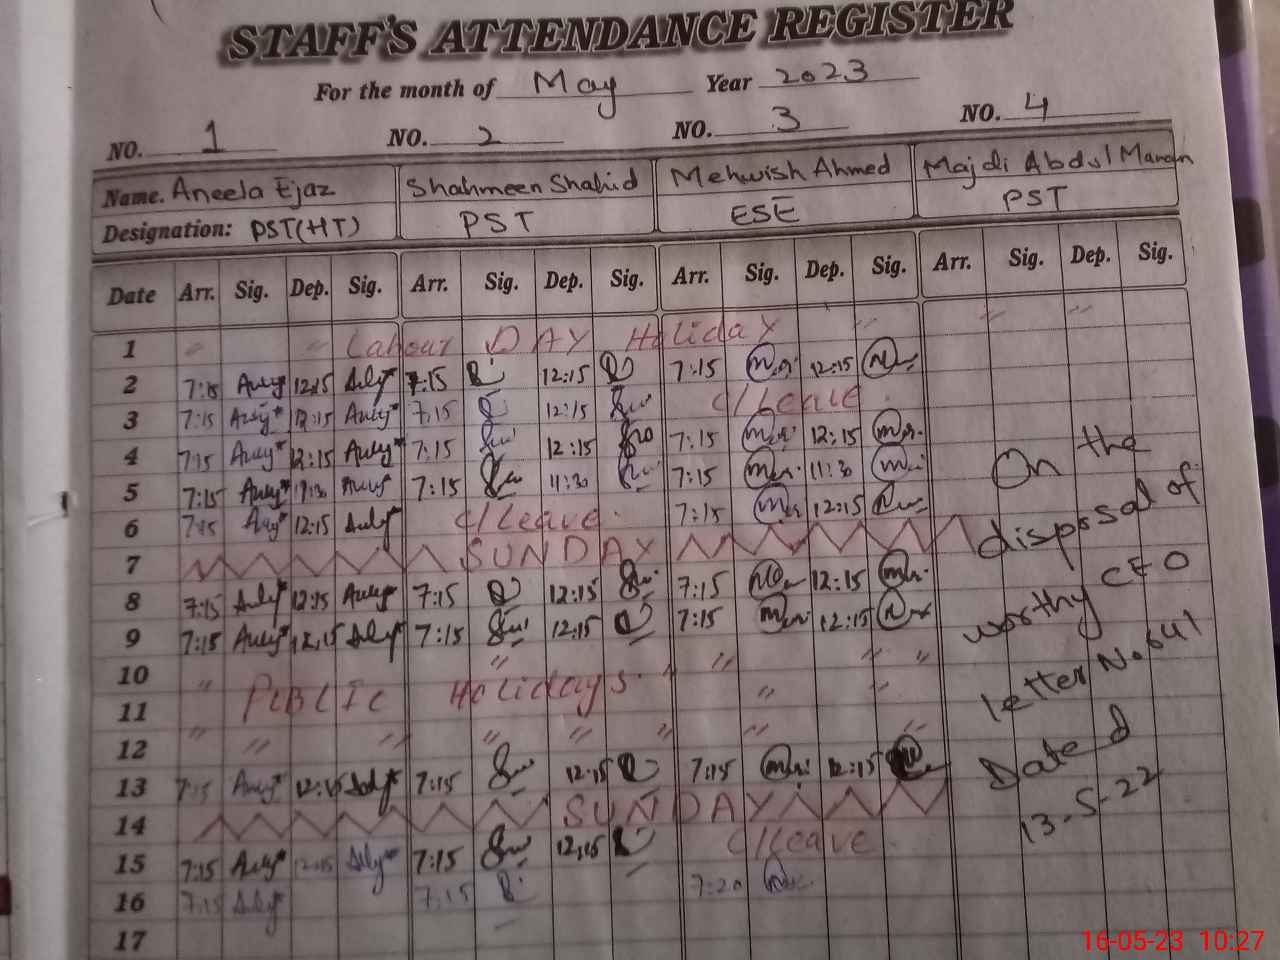 STAFF'S ATTENDANCE REGISTER
For the month of May Year 2023
NO. 1 NO. 2 NO. 3 NO. 4
Name. Aneela Ejaz Shahmeen Shahid Mehwish Ahmed Majdi Abdul Manan
Designation: PST(HT) PST ESE PST
Date Arr. Sig. Dep. Sig. Arr. Sig. Dep. Sig. Arr. Sig. Dep. Sig. Arr. Sig. Dep. Sig.
1 " " Labour DAY Holiday " " "
2 7:15 12:15 7:15 12:15 7:15 12:15
3 7:15 12:15 7:15 12:15 C/Leave
4 7:15 12:15 7:15 12:15 7:15 12:15
5 7:15 11:30 7:15 11:30 7:15 11:30
6 7:15 12:15 C/Leave 7:15 12:15
7 SUNDAY
8 7:15 12:15 7:15 12:15 7:15 12:15
9 7:15 12:15 7:15 12:15 7:15 12:15
10 " " " "
11 " PUBLIC Holidays " "
12 " " " " " " " "
13 7:15 12:15 7:15 12:15 7:15 12:15
14 SUNDAY
15 7:15 12:15 7:15 12:15 C/Leave
16 7:15 7:15 7:20
17
On the
disposal of
worthy CEO
letter No. 641
Dated
13-5-22
16-05-23 10:27